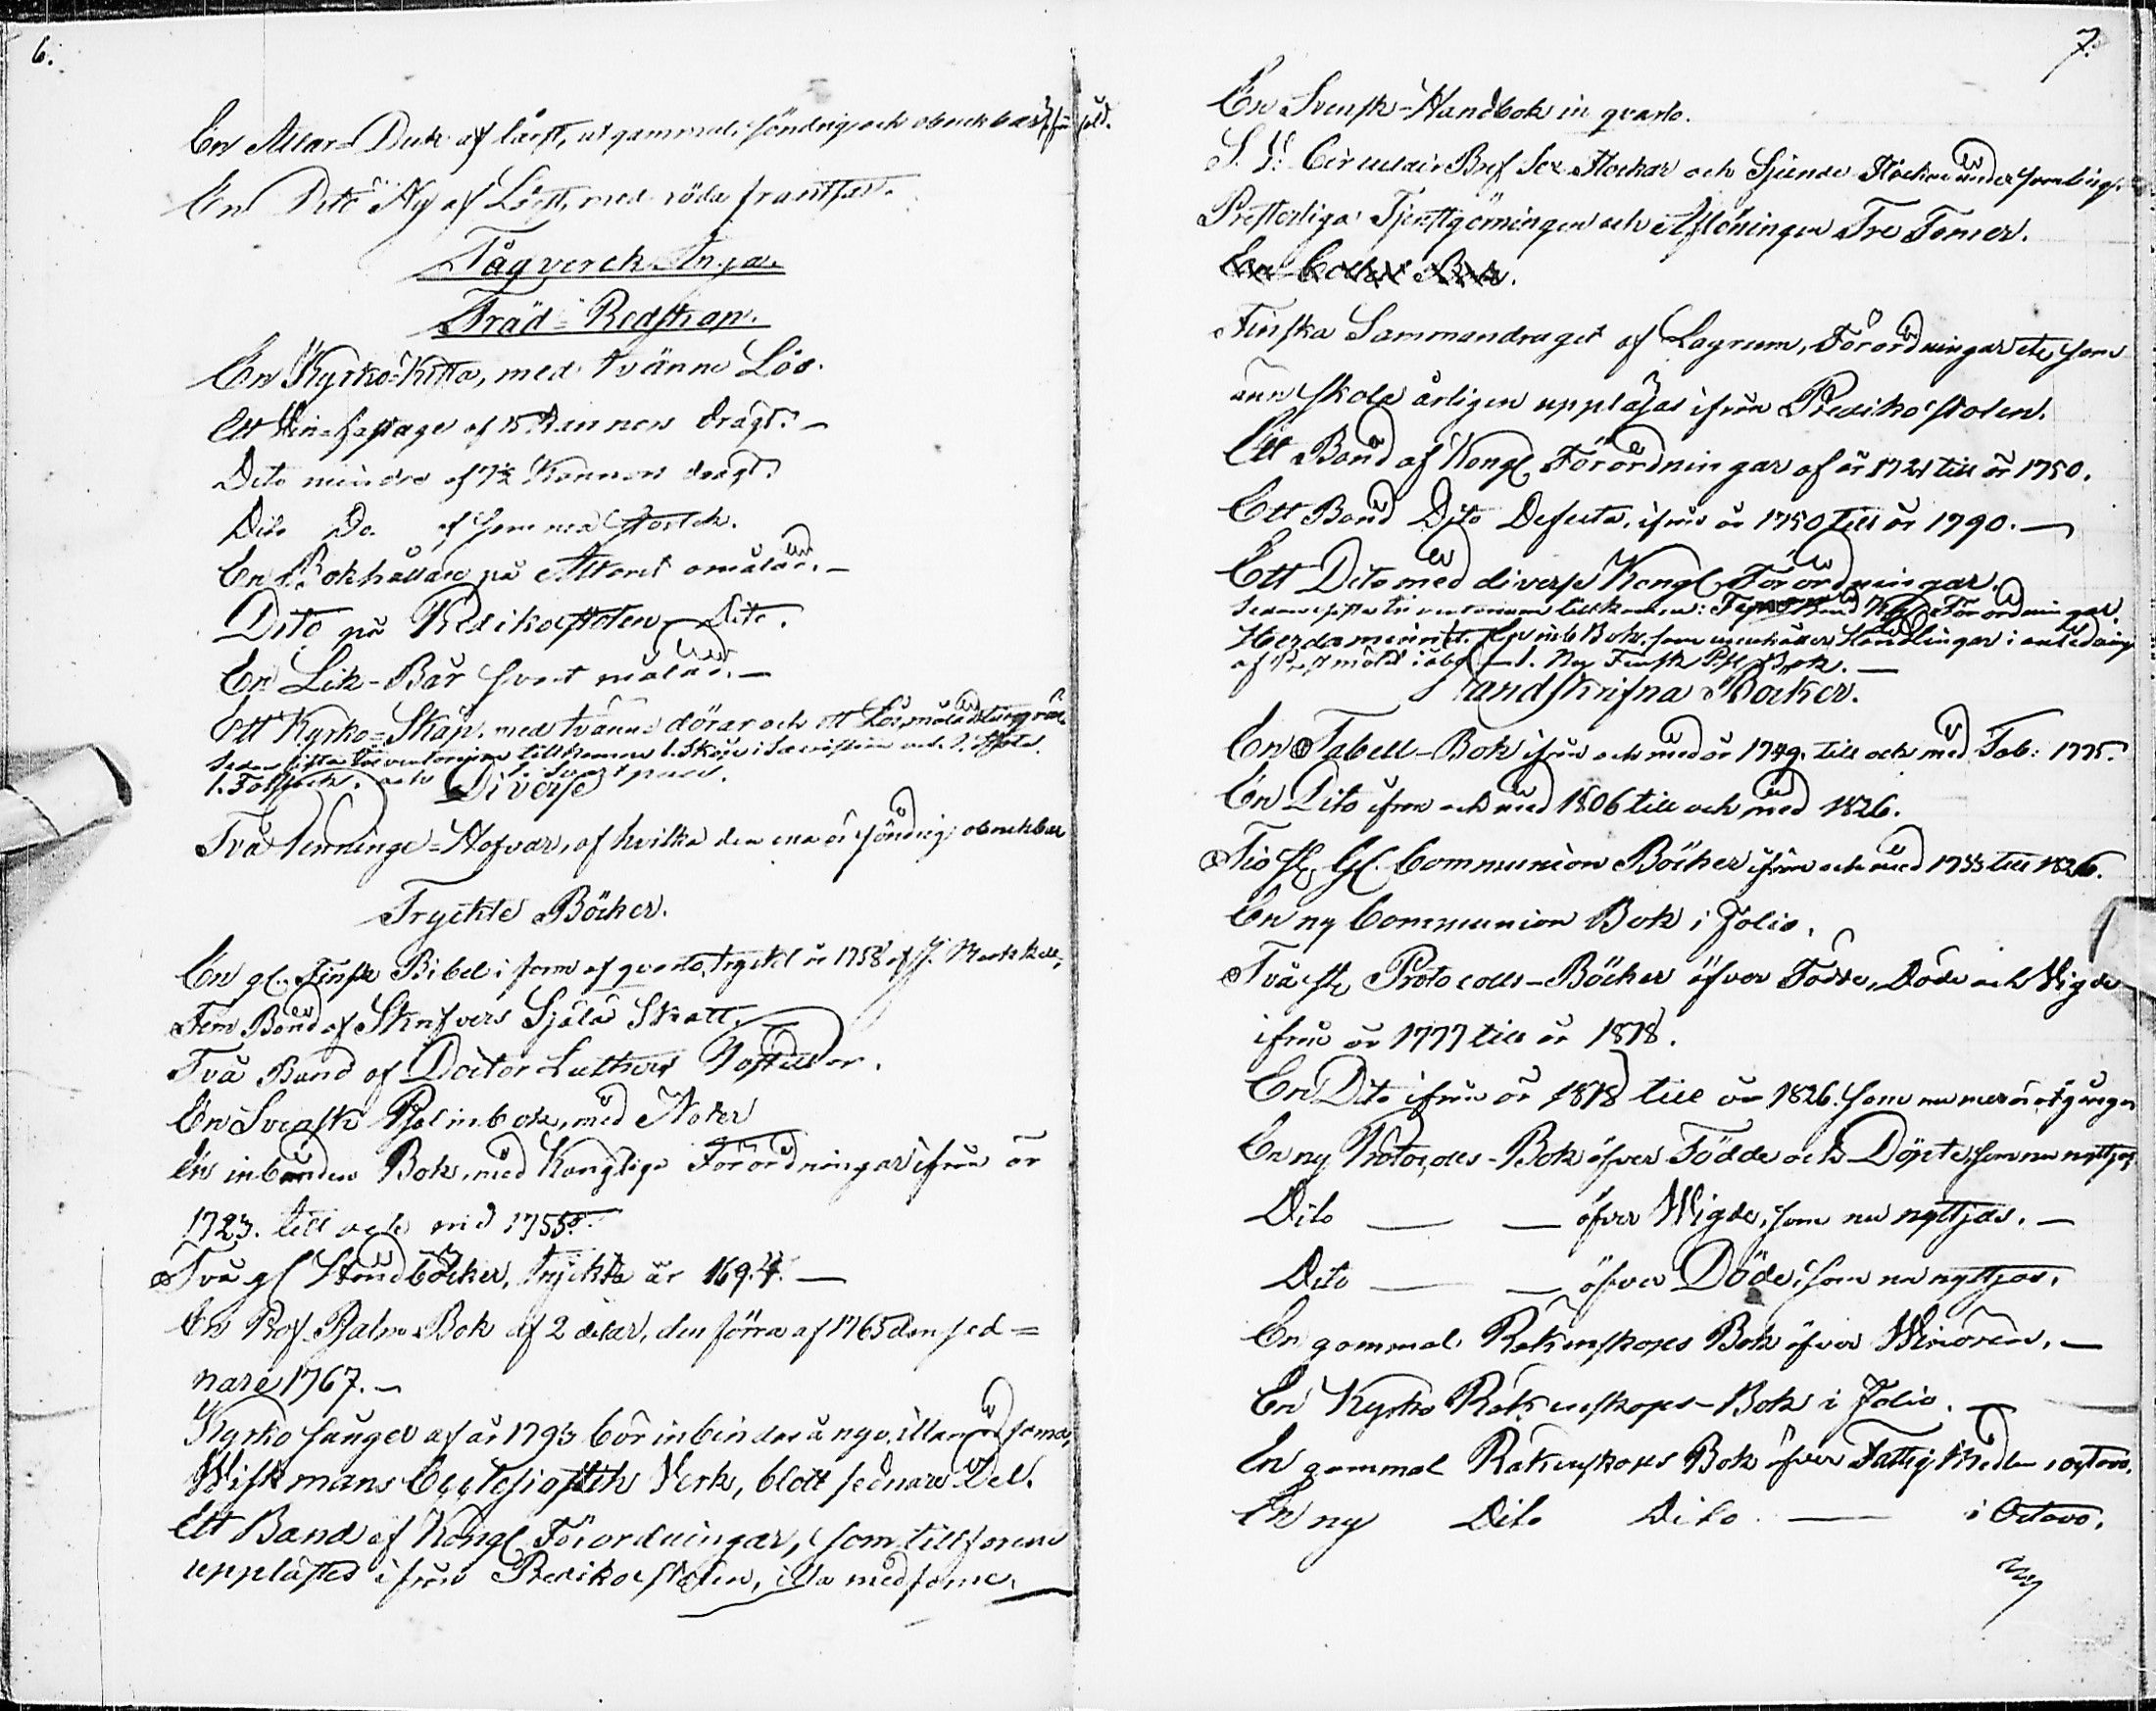 6.
En Altar-Duk af lärft, utgammal, söndrig och obrukbar
En Dito Ny af Lärft, med röda frantsar.
Tågverck Inga.
Träd-Redskap.
En Kyrko-Kista, med tvänne Lås.
Ett Vin-fastage af 15 Kannors drägt. –
Dito mindre af 7½ Kannors drägt.
Dito Do. af samma storlek.
En Bokhållare på Altaret omålad. –
Dito på Predikostolen Dito.
En Lik-Bår svart målad. –
Ett Kyrko-Skåp, med tvänne dörar och ett Lås, målad
Sedan sista Inventarium tillkommne 1. Skåp i Sacristian och 1. Stol
1. och
Diverse
Två Hofvar, af hvilka den ena är söndrig obrukbar
Tryckte Böcker.
En gl. Finsk Bibel i form af quarto, tryckt år 1758 af J. Merckell.
Fem Band af Skrifvers Själa Skatt.
Två Band af Doctor Luthers Postillor.
En Svensk Psalmbok, med Noter
En inbunden Bok, med Kunglige Förordningar ifrån år
1723. till och med 1755.
Två gl Handböcker, tryckta år 1694. –
En Prof Psalm-Bok af 2 delar, den förra af 1765 den sed=
nare 1767. –
Kyrko sånger af år 1793 bör inbindas å nyo, illa medfarna,
Wiskmans Ecclesiastik Verk, blott sednare Del.
Ett Band af Kongl Förordningar, som tillforene
upplästes ifrån Predikostolen, illa medfarne,
7.
En Svensk-Handbok in qvarto.
S. V. Circulair Bref Sex Stockar och Sjunde
Presterliga Tjenstgöringen och Aflöningen Tre Tomer.
Finska Sammandraget af Lagrum, Förordningar etc som
ännu skola årligen uppläsas ifrån Predikostolen.
Ett Band af Kongl Förordningar af år 1721 till år 1750.
Ett Band Dito Defecta, ifrån år 1750 till år 1790. –
Ett Dito med diverse Kongl. Förordningar.
Sedan sista Inventarium tillkommne: Fem Band Kgl. Förordningar.
Herdaminnet. Bok, som innehåller Handlingar i anledning
af 1. Ny Finsk Ps. Bok. –
Handskrifna Böcker.
En Tabell-Bok ifrån och med år 1749. till och med Tab: 1775.
En Dito ifrån och med 1806 till och med 1826.
Tio st. gl. Communion Böcker ifrån och med 1733 till 1826.
En ny Communion Bok i Folio.
Två st. Protocolls-Böcker öfver Födde, Döde och Vigde
ifrån år 1777 till år 1818.
En Dito ifrån år 1818 till år 1826. som nu mer är utgången
En ny Protocolls-Bok öfver Födde och Döpte, som nu nyttjas
Dito — — öfver Wigde, som nu nyttjas. –
Dito — — öfver Döde, som nu nyttjas.
En gammal Räkenskaps Bok öfver –
En Kyrko Räkenskaps-Bok i Folio. –
En gammal Räkenskaps Bok öfver Fattig Medlen i octavo.
En ny Dito Dito — i Octavo.